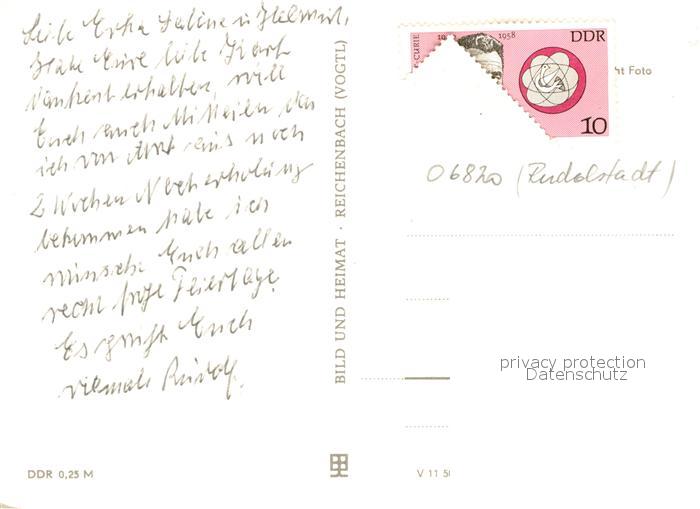 Liebe Erka Sabine u Helmut,
Habe Eure liebe Karte
dankend erhalten, will
Euch auch Mitteilen das
ich von Arzt aus noch
2 Wochen Nacherholung
bekommen habe ich
wünsche Euch allen
recht frohe Feiertage.
Es grüßt Euch
vielmals Rudolf.
DDR 0,25 M
BILD UND HEIMAT · REICHENBACH (VOGTL)
CURIE 1958
DDR
10
ht Foto
06820 (Rudolstadt)
privacy protection
Datenschutz
V 11 50